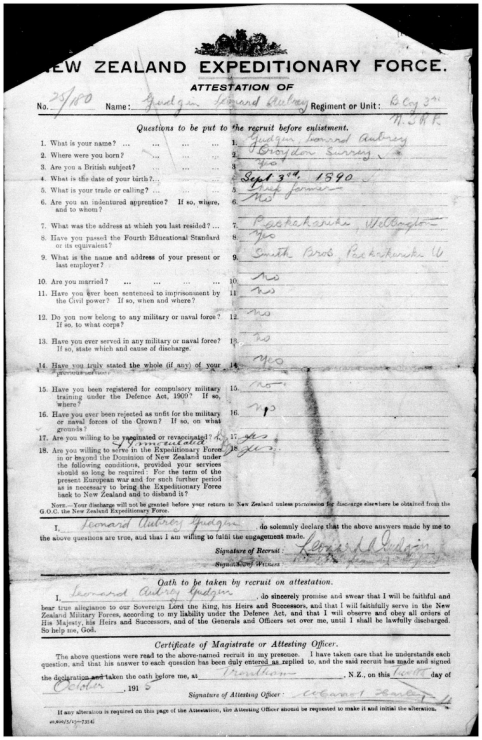 NEW ZEALAND EXPEDITIONARY FORCE.
ATTESTATION OF
No. 25/180 Name: Gudgin Leonard Aubrey Regiment or Unit: B Coy 3rd
N.Z.R.B.
Questions to be put to the recruit before enlistment.
1. What is your name? ... 1. Gudgin, Leonard Aubrey
2. Where were you born? ... 2. Croydon Surrey
3. Are you a British subject? ... 3. Yes
4. What is the date of your birth? ... 4. Sept 3rd, 1890
5. What is your trade or calling? ... 5. farmer
6. Are you an indentured apprentice? If so, where, 6. No
and to whom?
7. What was the address at which you last resided? ... 7. Paekakariki, Wellington
8. Have you passed the Fourth Educational Standard 8. Yes
or its equivalent?
9. What is the name and address of your present or 9. Smith Bros, Paekakariki
last employer?
10. Are you married? ... 10. no
11. Have you ever been sentenced to imprisonment by 11. no
the Civil power? If so, when and where?
12. Do you now belong to any military or naval force? 12. no
If so, to what corps?
13. Have you ever served in any military or naval force? 13. no
If so, state which and cause of discharge.
14. Have you truly stated the whole (if any) of your 14. Yes
previous service?
15. Have you been registered for compulsory military 15. no
training under the Defence Act, 1909? If so,
where?
16. Have you ever been rejected as unfit for the military 16. no
or naval forces of the Crown? If so, on what
grounds?
17. Are you willing to be vaccinated or revaccinated? 17. yes
Innoculated
18. Are you willing to serve in the Expeditionary Force 18. yes
in or beyond the Dominion of New Zealand under
the following conditions, provided your services
should so long be required: For the term of the
present European war and for such further period
as is necessary to bring the Expeditionary Force
back to New Zealand and to disband it?
NOTE.—Your discharge will not be granted before your return to New Zealand unless permission for discharge elsewhere be obtained from the
G.O.C. the New Zealand Expeditionary Force.
I, Leonard Aubrey Gudgin, do solemnly declare that the above answers made by me to
the above questions are true, and that I am willing to fulfil the engagement made.
Signature of Recruit: Leonard A Gudgin
Signature of Witness
Oath to be taken by recruit on attestation.
I, Leonard Aubrey Gudgin, do sincerely promise and swear that I will be faithful and
bear true allegiance to our Sovereign Lord the King, his Heirs and Successors, and that I will faithfully serve in the New
Zealand Military Forces, according to my liability under the Defence Act, and that I will observe and obey all orders of
His Majesty, his Heirs and Successors, and of the Generals and Officers set over me, until I shall be lawfully discharged.
So help me, God.
Certificate of Magistrate or Attesting Officer.
The above questions were read to the above-named recruit in my presence. I have taken care that he understands each
question, and that his answer to each question has been duly entered as replied to, and the said recruit has made and signed
the declaration and taken the oath before me, at Trentham, N.Z., on this day of
October, 1915
Signature of Attesting Officer:
If any alteration is required on this page of the Attestation, the Attesting Officer should be requested to make it and initial the alteration.